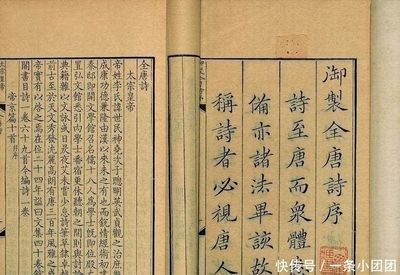 御製全唐詩序
詩至唐而衆體
備亦諸法畢該故
稱詩者必視唐人
全唐詩
太宗皇帝
帝姓李氏諱世民神堯次子聰明英武貞觀之治庶幾
成康功德兼隆由漢以來未之有也而銳情經術初建
秦邸即開文學館召名儒十八人為學士既即位殿左
置弘文館悉引內學士番宿更休聽朝之間則與討論
典籍雜以文詠或日昃夜艾未嘗少怠詩筆草隸卓越
前古至於天文秀發沈麗高朗有唐三百年風雅之盛
帝實有以啓之焉在位二十四年諡曰文集四十卷
閣書目詩一卷六十九首今編詩一卷
帝京篇十首 并序
快传号/一条小团团